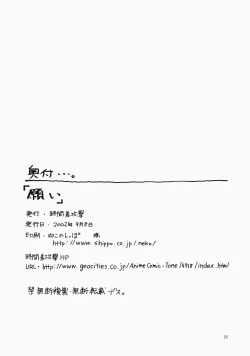 奥付…。
「願い」
発行・時間差攻撃
発行日・2002年9月8日
印刷・ねこのしっぽ 様
http://www.shippo.co.jp/neko/
時間差攻撃HP
URL・http://www.geocities.co.jp/AnimeComic-Tone/6918/index.html
無断複製・無断転載デス。